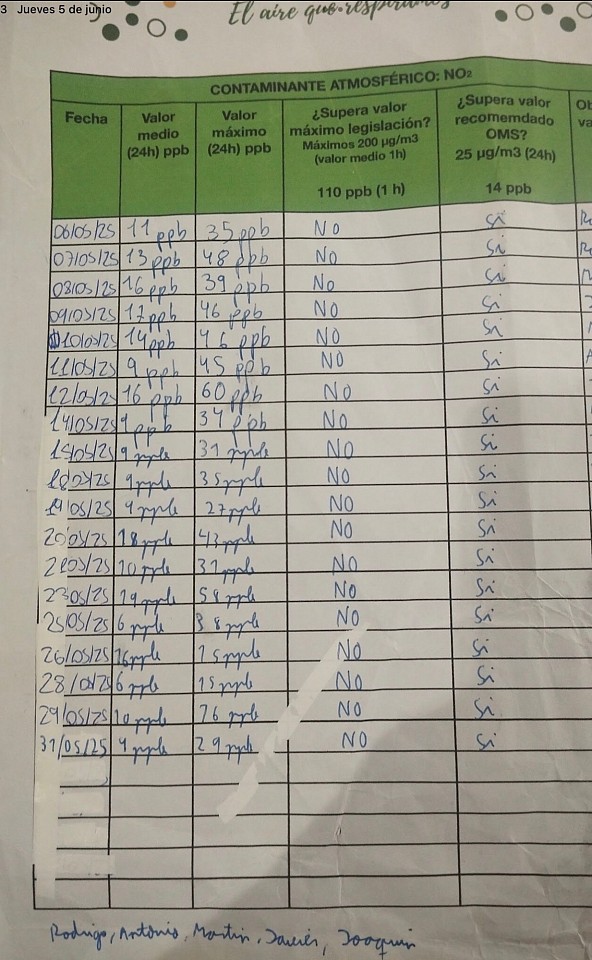 3 Jueves 5 de junio
El aire que respiramos
CONTAMINANTE ATMOSFÉRICO: NO₂
Fecha Valor medio (24h) ppb Valor máximo (24h) ppb ¿Supera valor máximo legislación? Máximos 200 µg/m3 (valor medio 1h) 110 ppb (1 h) ¿Supera valor recomemdado OMS? 25 µg/m3 (24h) 14 ppb
06/05/25 11 ppb 35 ppb NO Si
07/05/25 13 ppb 48 ppb NO Si
08/05/25 16 ppb 39 ppb NO Si
09/05/25 17 ppb 46 ppb NO Si
10/05/25 14 ppb 46 ppb NO Si
11/05/25 9 ppb 45 ppb NO Si
12/05/25 16 ppb 60 ppb NO Si
14/05/25 9 ppb 37 ppb NO Si
15/05/25 9 ppb 31 ppb NO Si
18/05/25 9 ppb 35 ppb NO Si
19/05/25 9 ppb 27 ppb NO Si
20/05/25 18 ppb 43 ppb NO Si
10 ppb 31 ppb NO Si
23/05/25 19 ppb 58 ppb NO Si
25/05/25 6 ppb 38 ppb NO Si
26/05/25 16 ppb 75 ppb NO Si
28/05/25 6 ppb 15 ppb NO Si
29/05/25 10 ppb 76 ppb NO Si
31/05/25 9 ppb 29 ppb NO Si
Rodrigo, Antonio, Martín, Javier, Joaquin